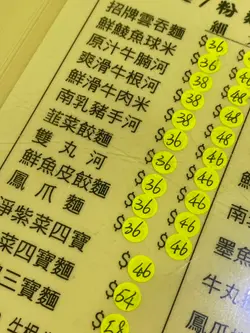 / 粉
細
招牌雲吞麵 $36
鮮鯪魚球米 $36
原汁牛腩河 $38 $48
爽滑牛根河 $38 $48
鮮滑牛肉米 $38 $48
南乳豬手河 $38 $48
韮菜餃麵 $36 $46
雙丸河 $36 $46
鮮魚皮餃麵 $36 $46
鳳爪麵 $36 $46
淨紫菜四寶 $46
菜四寶麵 $64
三寶麵
墨魚
牛丸